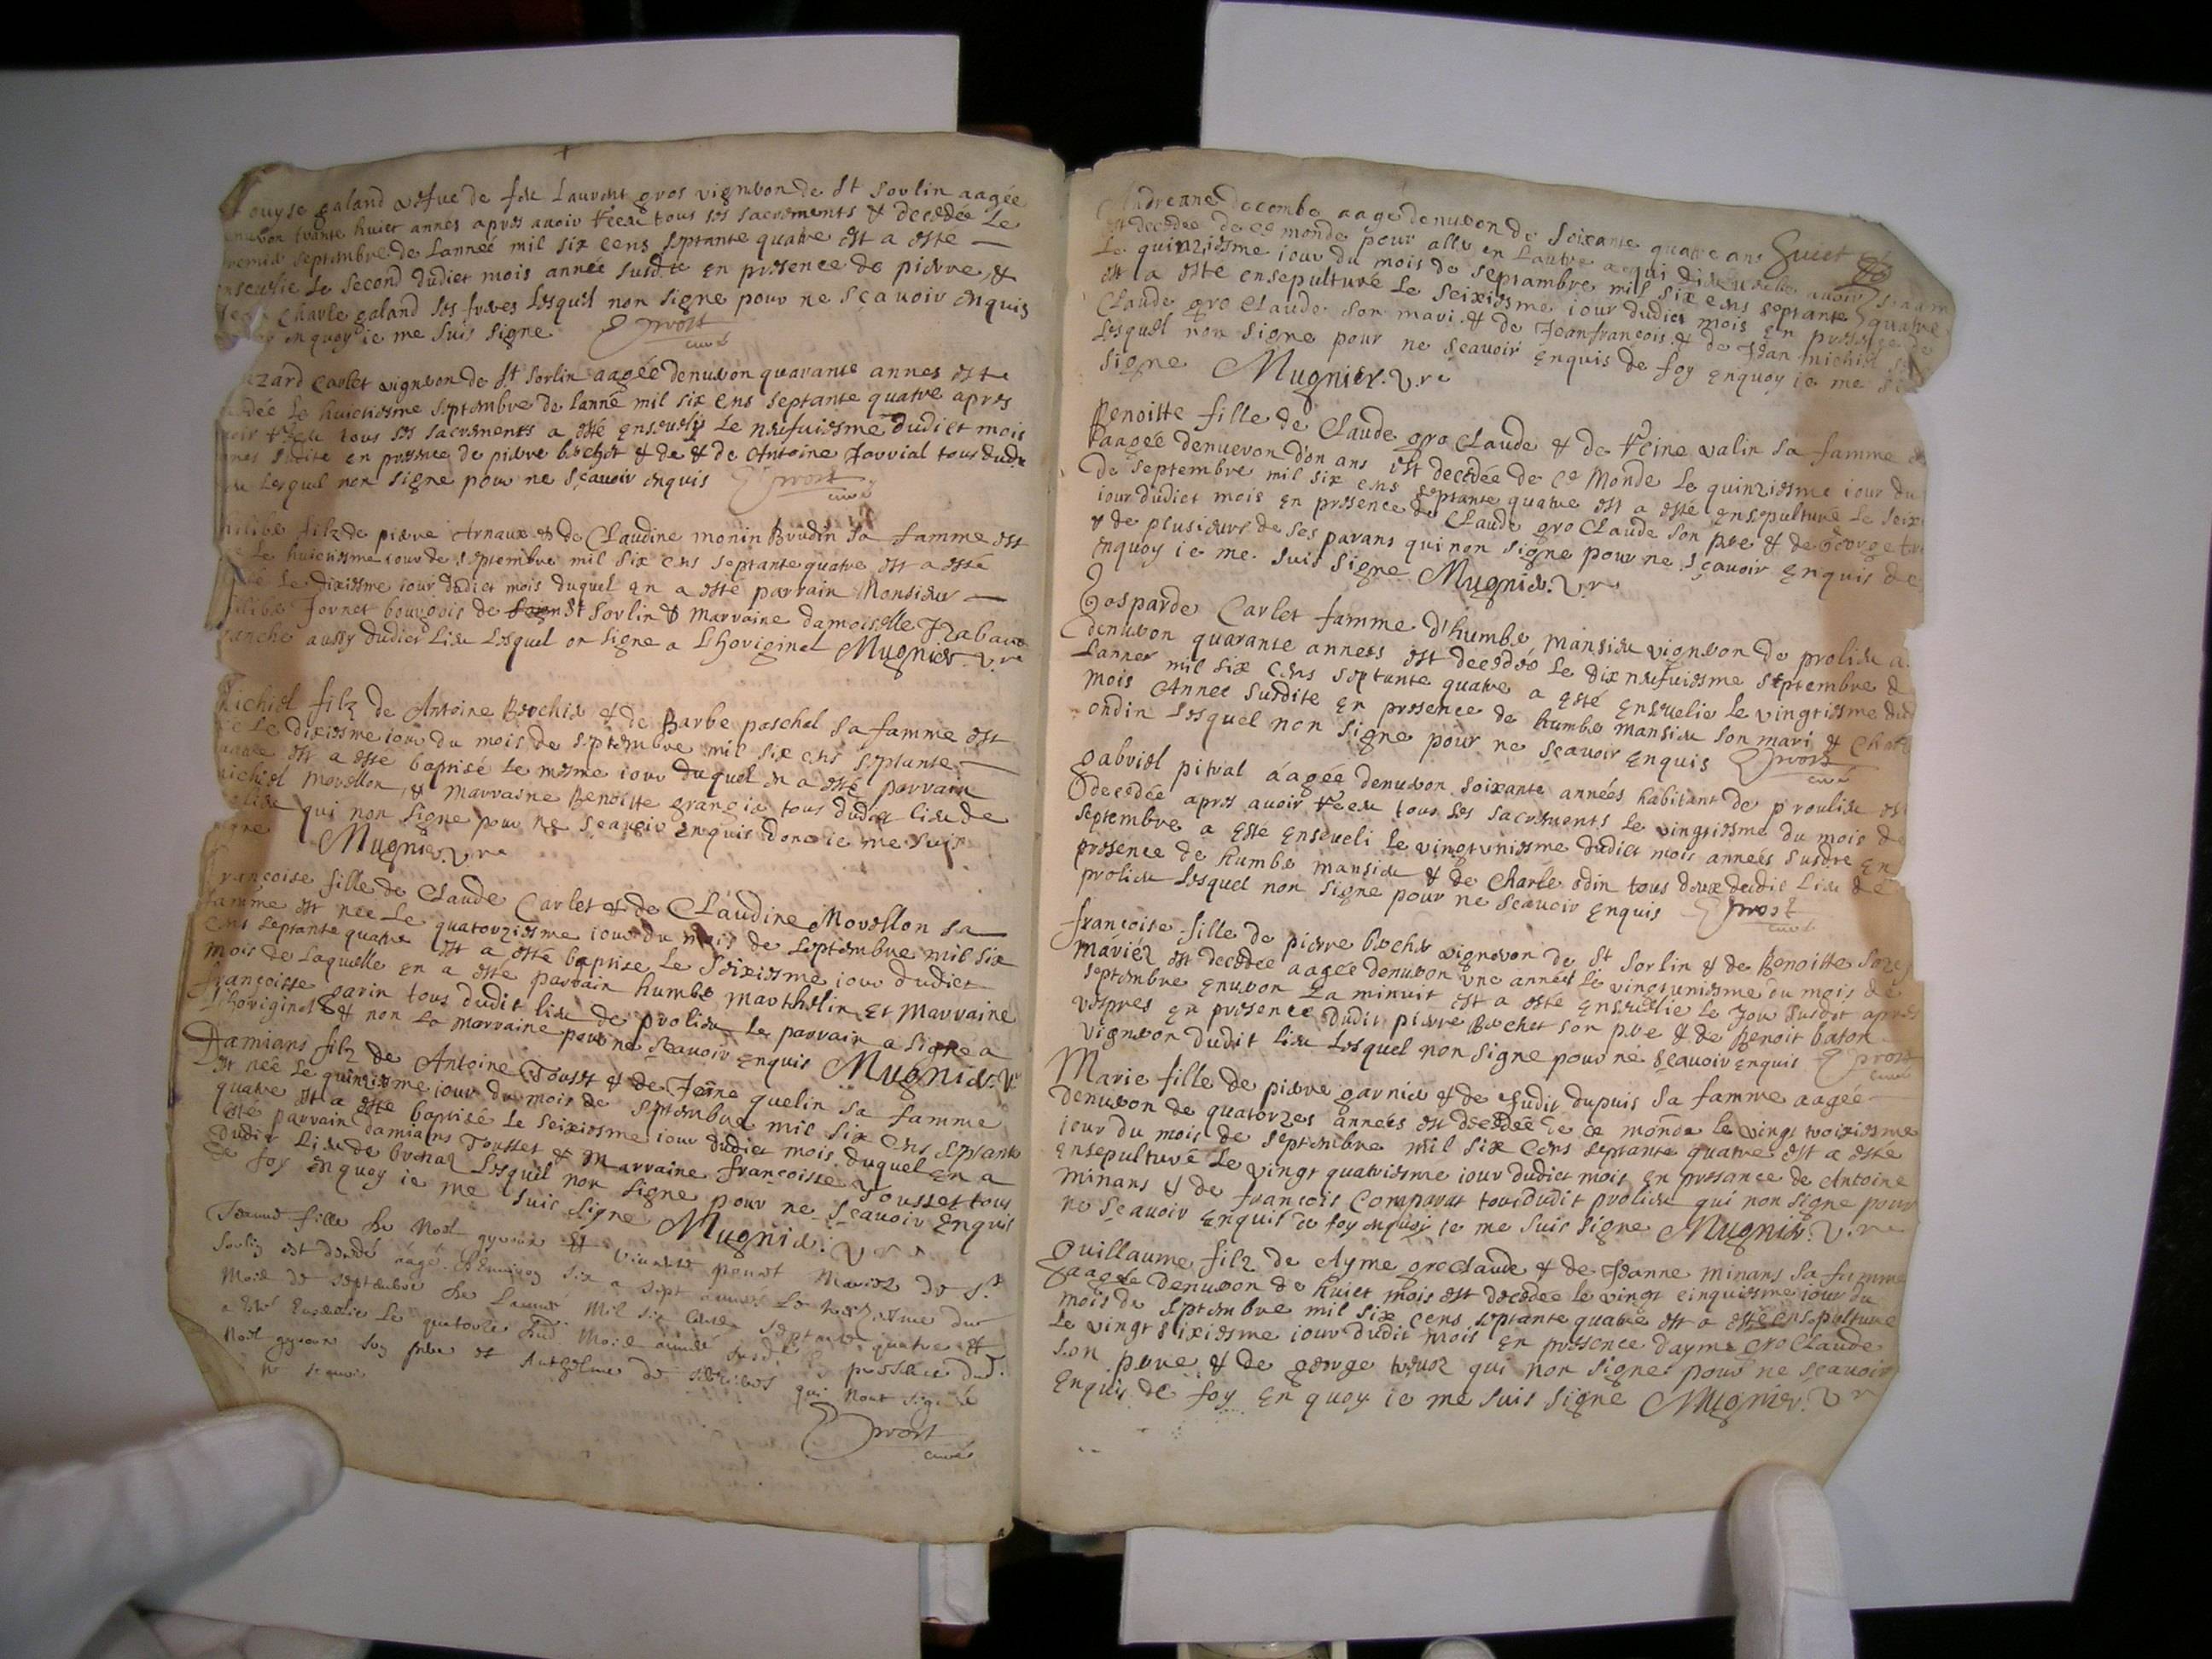 Louyse galand vefue de feu Laurent gros vigneron de St Sorlin aagée
trante huict annés apres avoir receu tous ses sacrements & decedée Le
premier septembre de Lanneé mil six cens septante quatre est a esté
enseuelie Le second dudict mois année susdite En presence de pierre &
Charle galand ses freres Lesquel non signe pour ne sçavoir enquis
enquoy ie me suis signe Prost curé
Carlet vigneron de St sorlin aagée denuiron quarante annes este
Le huictiesme septembre de Lanné mil six cens septante quatre apres
receu tous ses sacrements a esté enseuely Le neufuiesme dudict mois
en presence de pierre bochet & de & de Antoine Jouvial tous dudit
Lesquel non signe pour ne sçavoir enquis Prost curé
filz de pierre Arnaux & de Claudine monin Brudin sa famme est
Le huictiesme iour de septembre mil six cens septante quatre est a esté
Le dixiesme iour dudict mois duquel en a esté parrain Monsieur
fornet bourgois de St Sorlin & marraine damoiselle
aussy dudict Lieu Lesquel on signe a Lhoriginel Mugnier. V.re
Michiel filz de Antoine Brochier & de Barbe paschal sa famme est
Le dixiesme iour du mois de septembre mil six cens septante
quatre est a esté baptisé Le mesme iour duquel en a esté parrain
michiel Morellon, & marraine Benoitte grangie tous dudict lieu de
qui non signe pour ne sçavoir enquis donc ie me suis
signe Mugnier. V.re
Françoise fille de Claude Carlet & de Claudine Morellon sa
famme est neé Le quatorziesme iour du mois de septembre mil six
cens septante quatre est a esté baptise Le seixiesme iour dudict
mois de Laquelle en a esté parrain humbe marthelin Et Marraine
françoisse garin tous dudit lieu de prolieu Le parrain a signé a
Lhoriginel & non La marraine pour ne sçavoir enquis Mugnier. V.r
Damians filz de Antoine Tousset & de Jeane quelin sa famme
est neé Le quinziesme iour du mois de septembre mil six cens septante
quatre est a esté baptisé Le seixiesme iour dudict mois duquel En a
esté parrain damians Tousset & Marraine françoisse Tousset tous
dudit Lieu de Lesquel non signe pour ne sçavoir Enquis
de foy enquoy ie me suis signe Mugnier. V.re
fille de Noel Et Mariez de St
Sorlin est decedé aagé denuiron six a sept anneé Le du
Mois de septembre de Lanneé Mil six cents septante quatre &
a este Enseuelie Le quatorze dud Mois anneé susd presence dud.
Noel son pere et Anthelme de qui nont signé
ne sçavoir
Prost curé
Andreanne decombe aage denuiron de soixante quatre ans
est decedee de ce monde pour aller en Lautre
Le quinziesme iour du mois de septambre mil six cens septante quatre
est a esté ensepulturé Le seixiesme iour dudict mois en presence de
Claude gro Claude son mari & de Jean françois & de Jean michiel
Lesquel non signe pour ne sçavoir enquis de foy enquoy ie me
signe Mugnier. V.re
Benoitte fille de Claude gro Claude & de Reine valin sa famme
aageé denueron don ans est decedée de ce Monde Le quinziesme iour du
de septembre mil six cens septante quatre est a esté ensepulturé Le
iour dudict mois en presence de Claude gro Claude son pere & de George
& de plusieurs de ses parans qui non signe pour ne sçavoir enquis de
enquoy ie me suis signe Mugnier. V.re
Gosparde Carlet famme d'humbe mansieu vigneron de prolieu a
denuiron quarante annees est decedeé Le dix neufuiesme septembre de
Lannee mil six cens septante quatre a esté enseuelie Le vingtiesme dud
mois Année susdite en presence de humbe mansieu son mari &
Lesquel non signe pour ne sçavoir enquis Prost curé
gabriel pitral áagée denuiron soixante années habitant de proulieu est
decedée apres avoir receu tous Les sacrements Le vingtiesme du mois de
septembre a esté enseueli Le vingtuniesme dudict mois annees susdte en
presence de humbe mansieu & de Charle odin tous deux dudit Lieu de
prolieu Lesquel non signe pour ne sçavoir enquis Prost curé
françoise fille de pierre bochet vigneron de St Sorlin & de Benoitte
mariez est decedee aagée denuiron une année Le vingtuniesme du mois de
septembre enuiron La minuit est a esté enseuelie Le Jour susdit apres
vespres en presence dudit pierre Bochet son pere & de Benoit baton
vigneron dudit lieu Lesquel non signe pour ne sçavoir enquis Prost curé
Marie fille de pierre garnier & de Judit dupuis sa famme aageé
denuiron de quatorzes annees est decedeé de ce monde le vingt troixiesme
iour du mois de septembre mil six cens septante quatre est a esté
ensepulturé Le vingt quatriesme iour dudict mois En presance de Antoine
Minans & de François Comparat tous dudit prolieu qui non signe pour
ne sçavoir enquis de foy enquoy ie me suis signe Mugnier. V.re
guillaume filz de Ayme gro Claude & de Jeanne minans sa famme
aageé denuiron de huict mois est decedee Le vingt cinquiesme iour du
mois de septembre mil six cens septante quatre est a esté ensepulturé
Le vingt sixiesme iour dudit mois en presence dayme gro Claude
son pere & de george qui non signe pour ne sçavoir
Enquis de foy en quoy ie me suis signe Mugnier. V.r